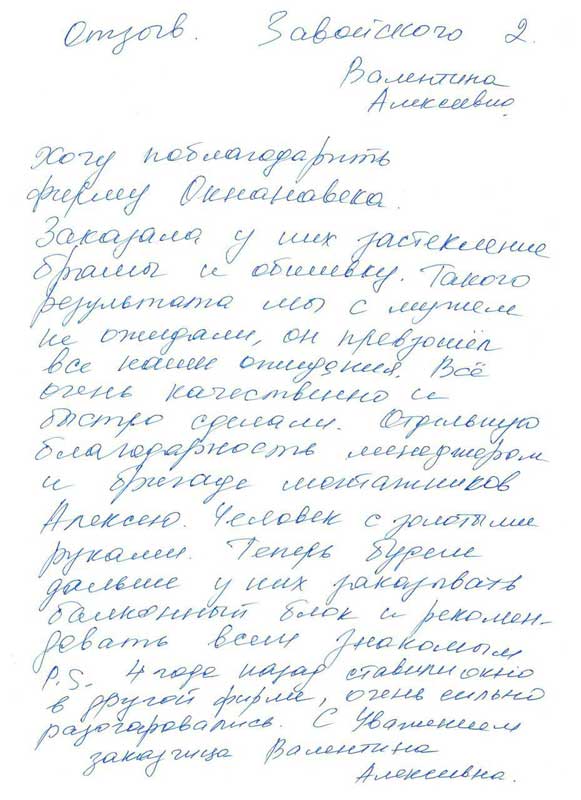 Отзыв. Завойского 2.
Валентина
Алексеевна
Хочу поблагодарить
фирму Окнанавека.
Заказала у них застекление
брамы и обшивку. Такого
результата мы с мужем
не ожидали, он превзошёл
все наши ожидания. Всё
очень качественно и
быстро сделали. Отдельную
благодарность менеджером
и бригаде монтажников
Алексею. Человек с золотыми
руками. Теперь будем
дальше у них заказывать
балконный блок и рекомен-
довать всем знакомым
P.S. 4 года назад ставили окно
в другой фирме, очень сильно
разочаровались. С Уважением
заказчица Валентина
Алексеевна.